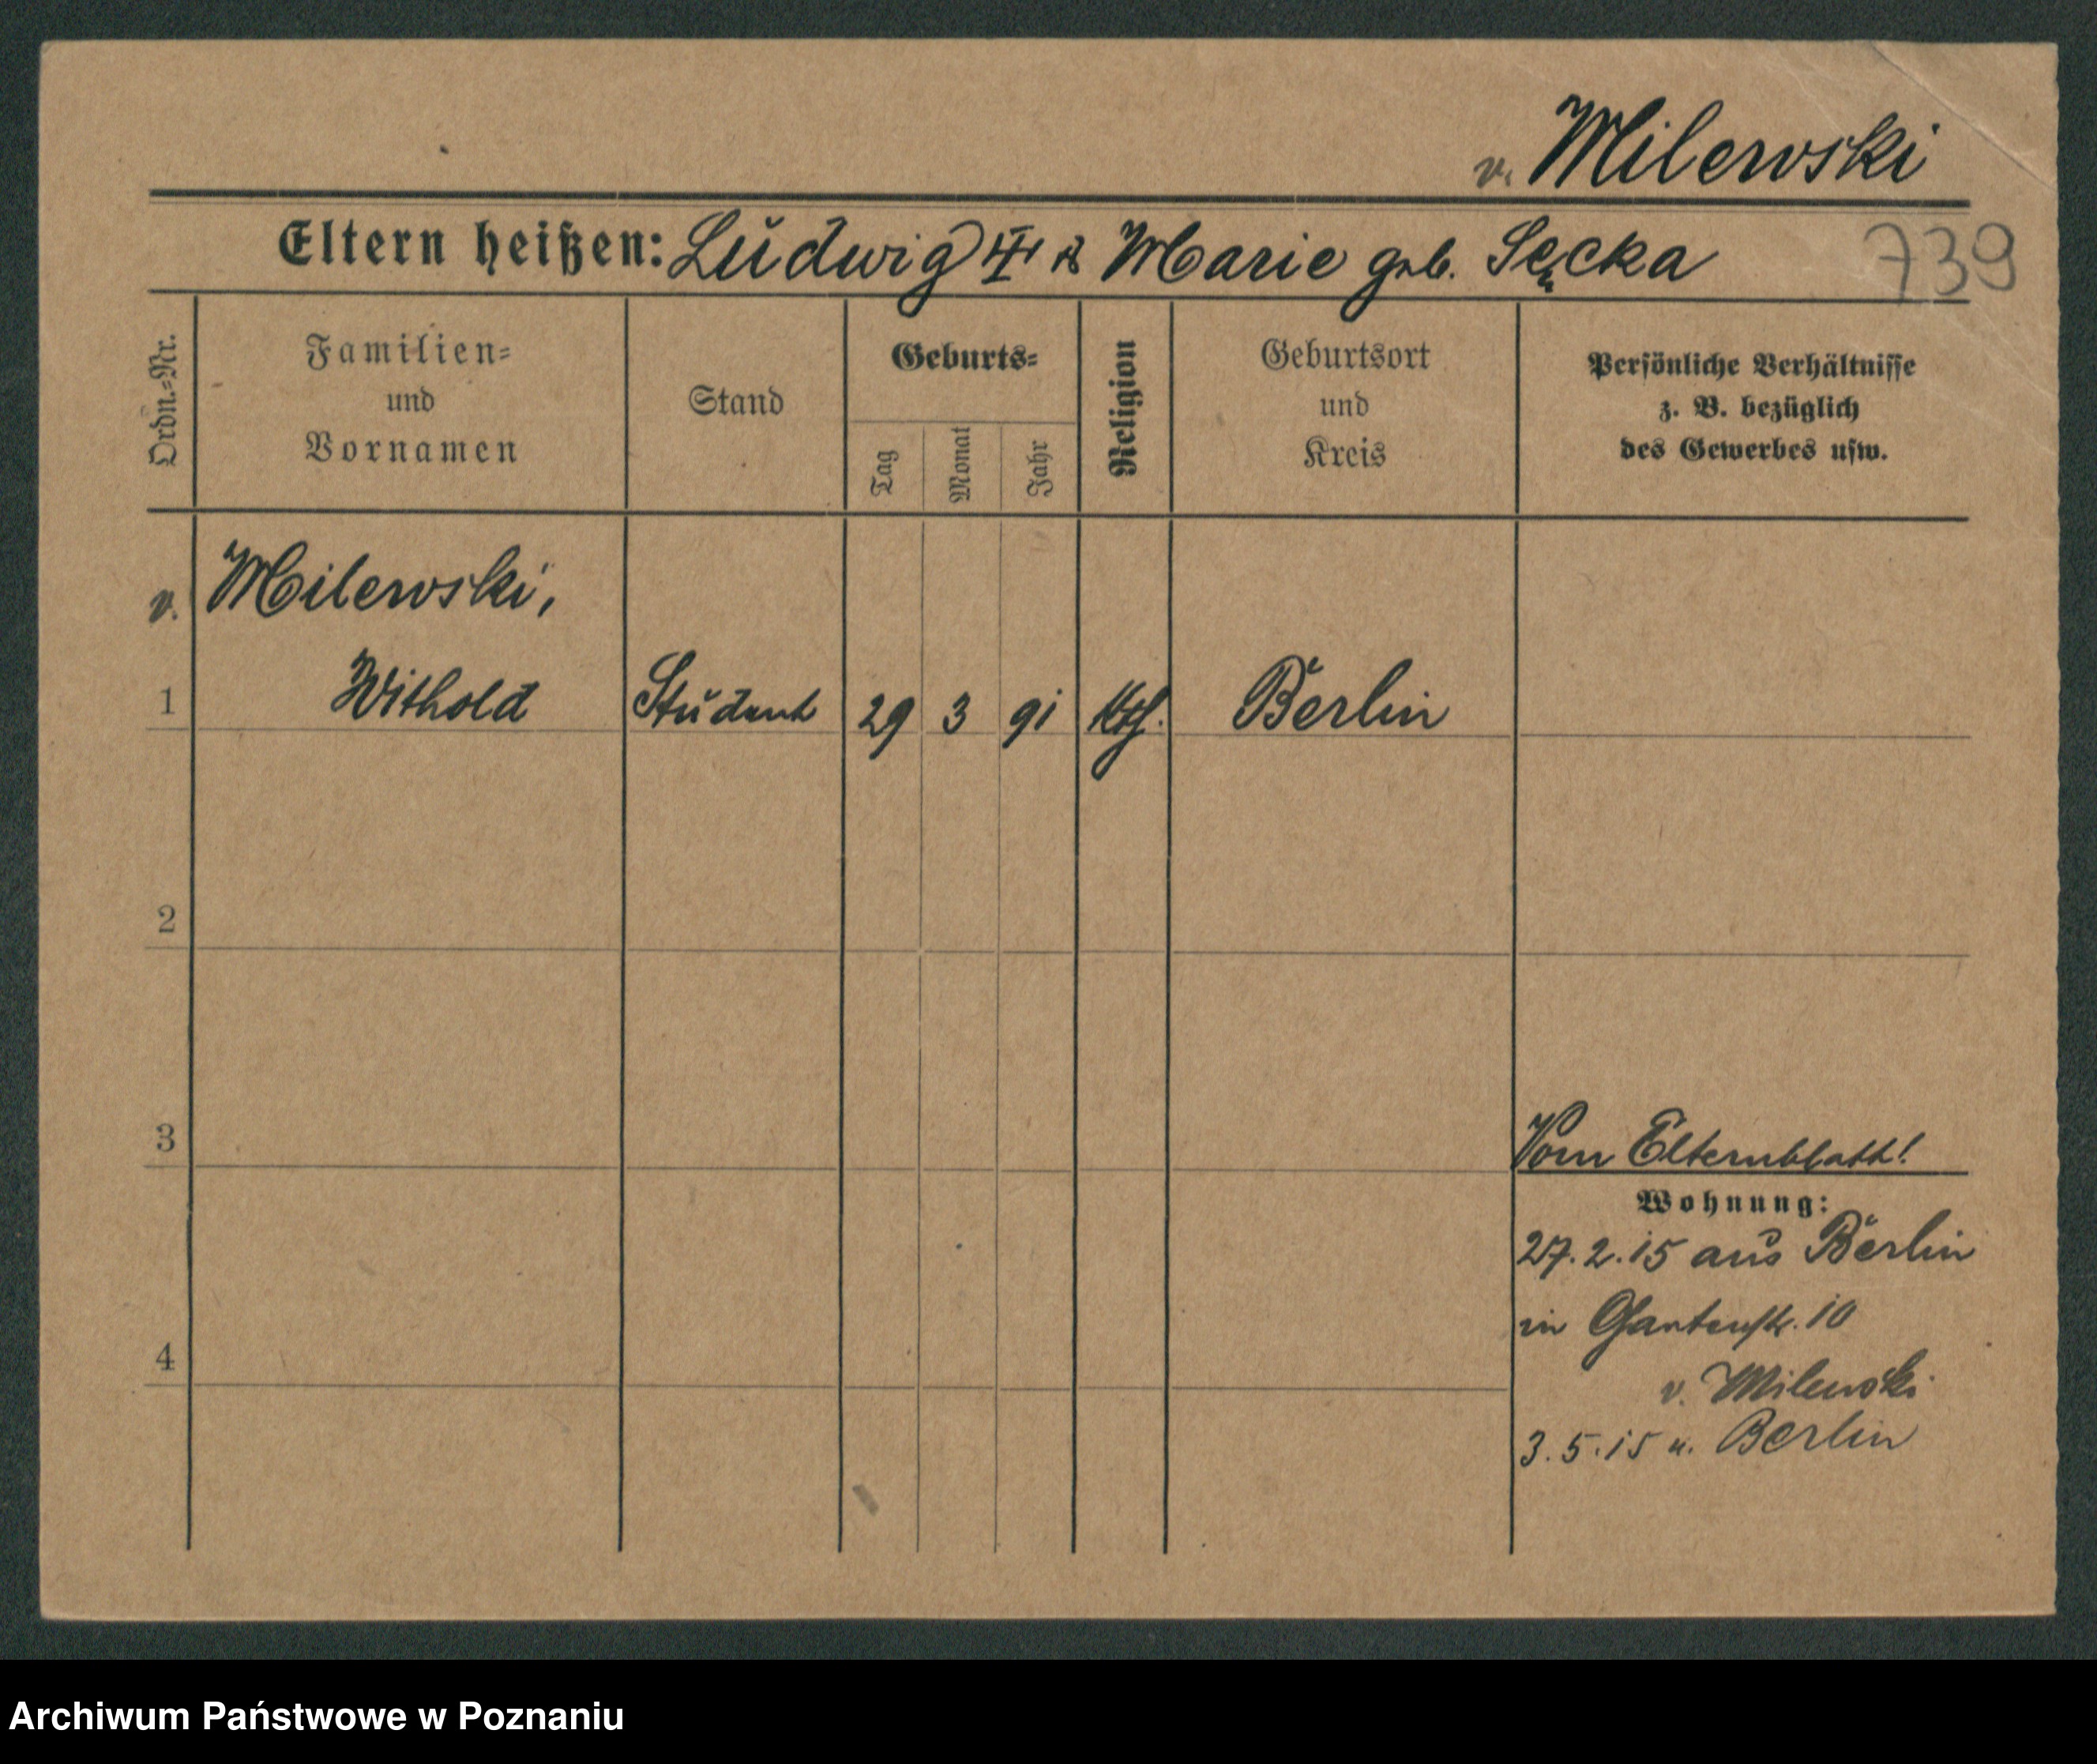 v. Milewski
Eltern heißen: Ludwig & Marie geb. Sęcka
739
Ordn.-Nr.
Familien-
und
Vornamen
Stand
Geburts-
Tag
Monat
Jahr
Religion
Geburtsort
und
Kreis
Persönliche Verhältnisse
z. B. bezüglich
des Gewerbes usw.
v. Milewski,
1 Withold Student 29 3 91 kth. Berlin
2
3
Vom Elternblatt!
Wohnung:
27.2.15 aus Berlin
in Gartenstr. 10
4
v. Milewski
3.5.15 n. Berlin
Archiwum Państwowe w Poznaniu